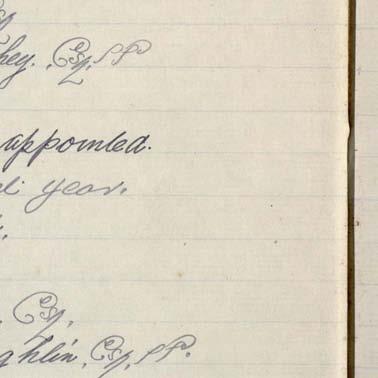 Esq. JP
appointed.
year.
Esq.
ghlin, Esq, JP.